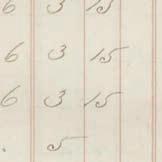 6 3 15
6 3 15
6 3 15
. 5